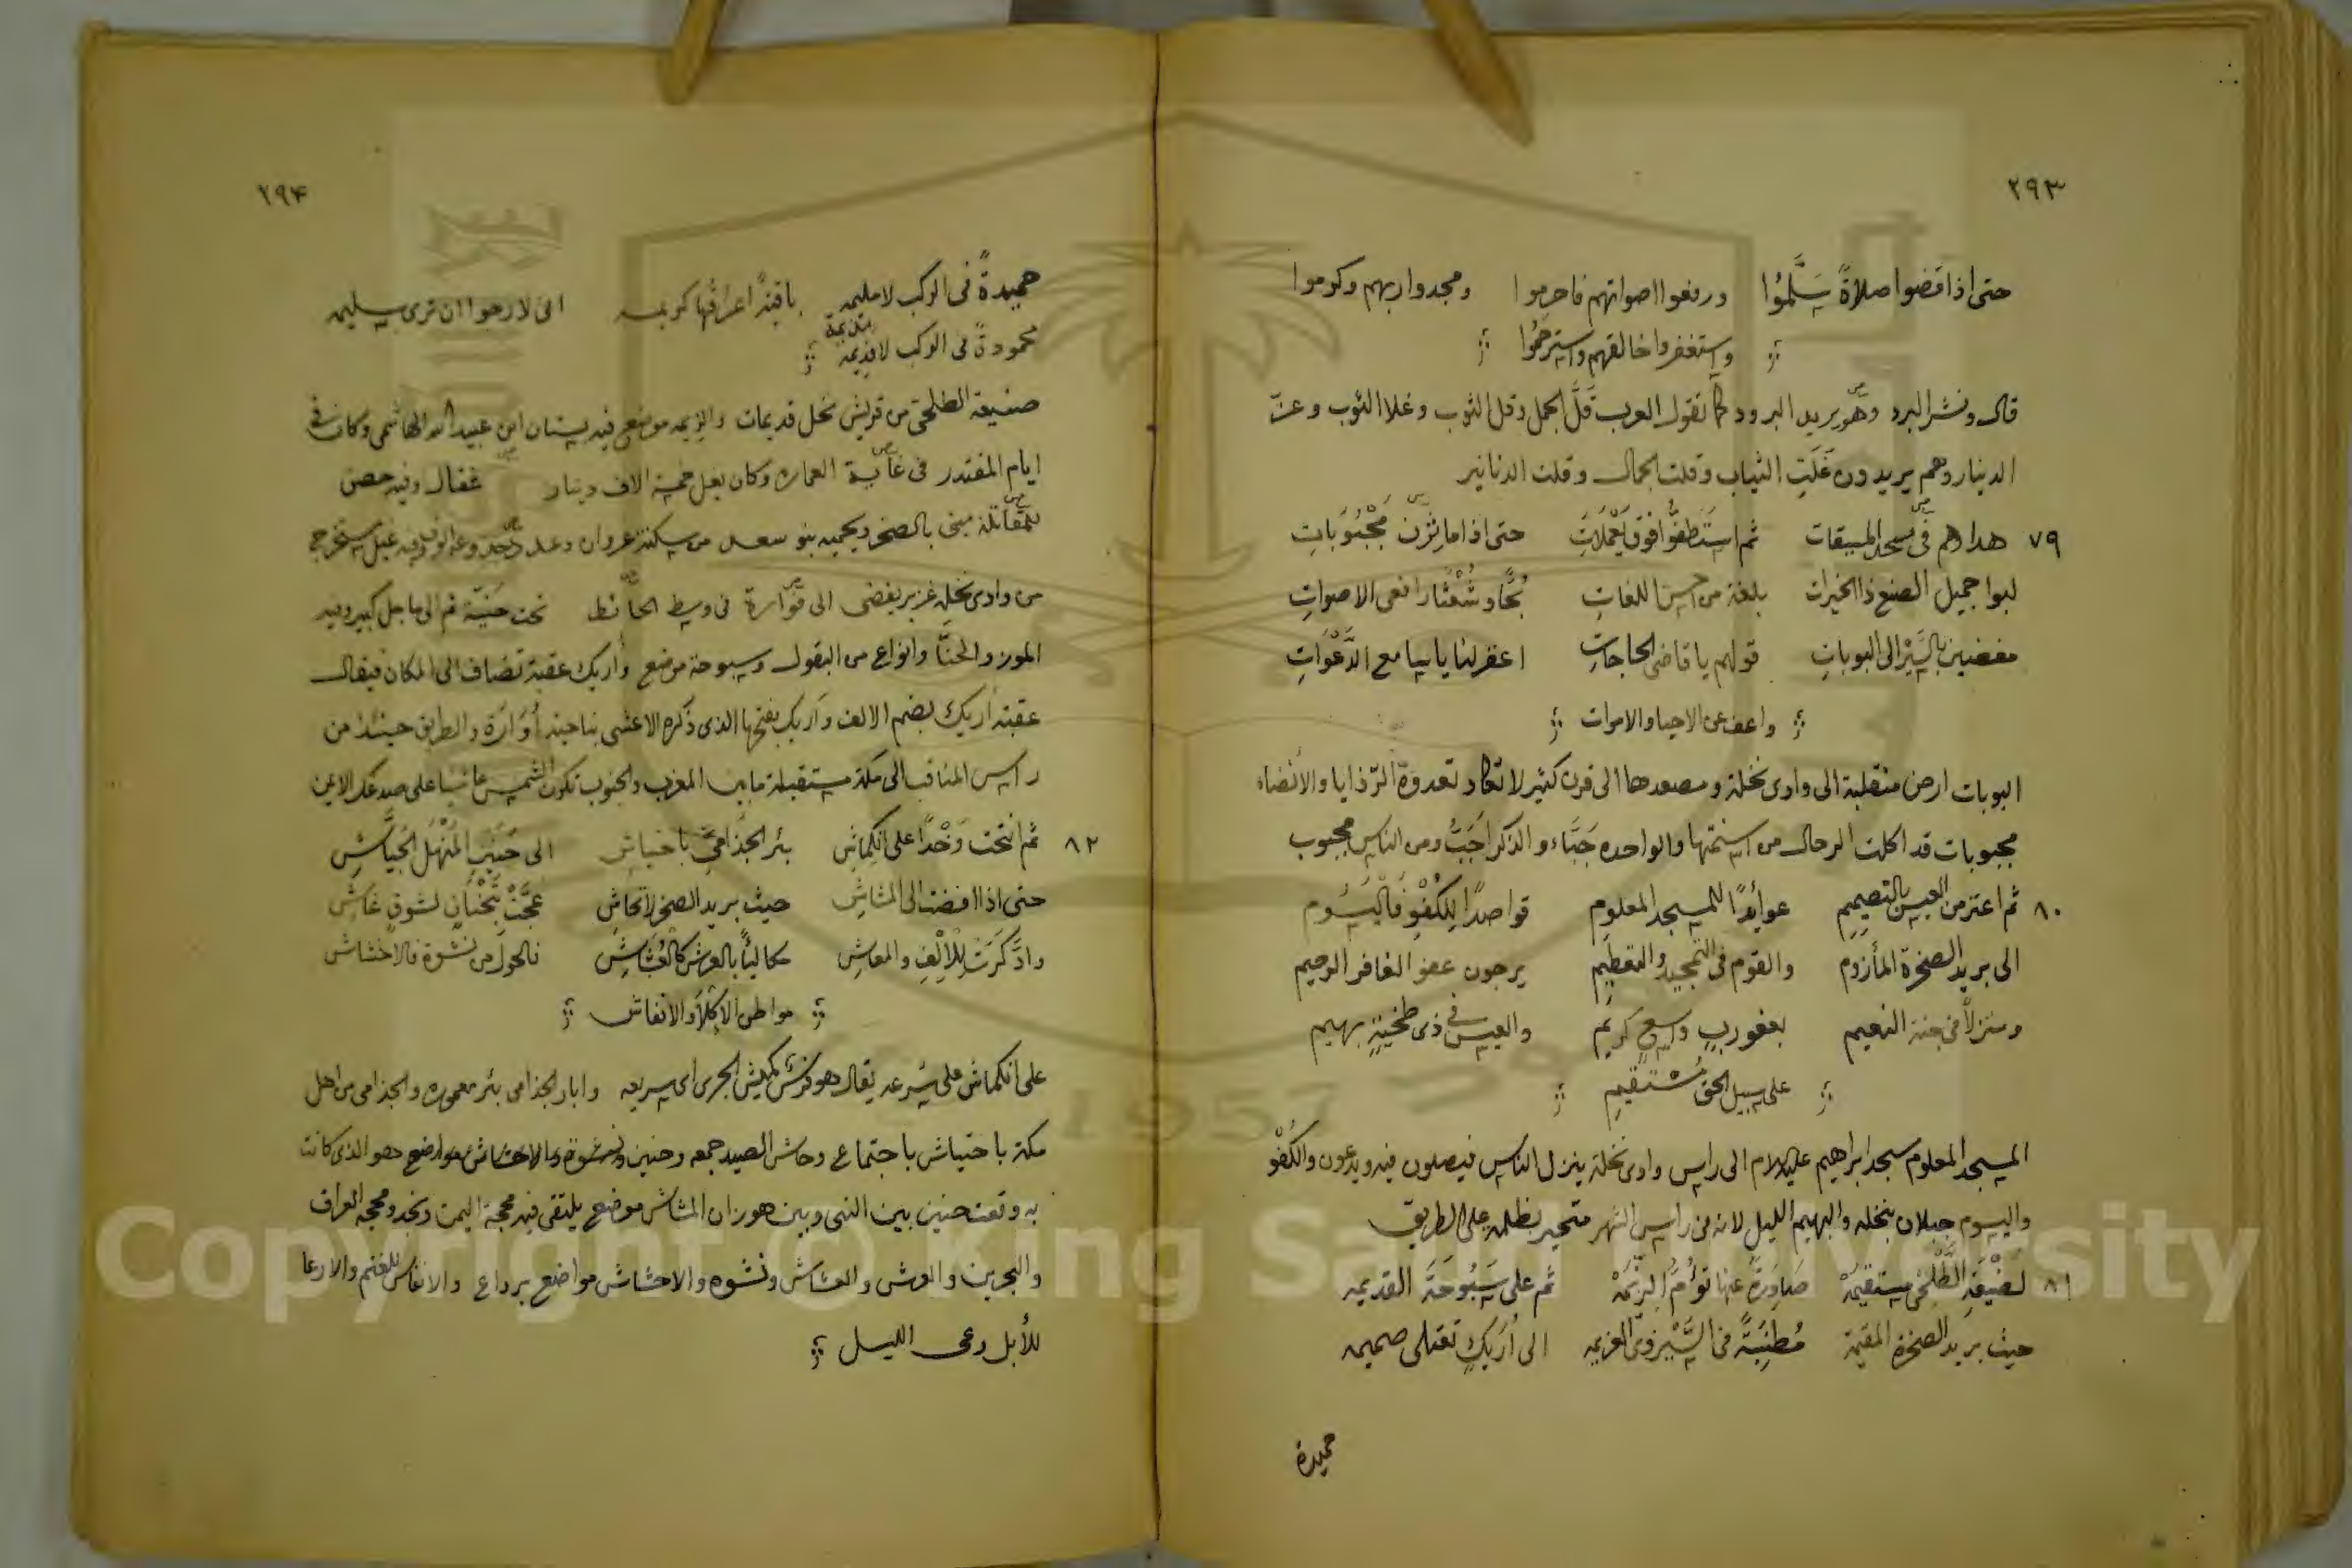 ٢٩٣
حتى اذا قضوا صلاةً سَلَّمُوا ورفعوا اصواتهم فاحرموا ومجدوا ربهم وكرموا
واستغفروا خالقهم واسترحمُوا
قال ونشر البرد وهو يريد البرود كما تقول العرب قَلَّ الجمل وقل الثوب وغلا الثوب وعزّ
الدينار وهم يريدون غَلَتِ الثياب وقلت الجمال وقلت الدنانير
٧٩ هداهم في مسجد الميقات ثم استَطفُّوا فوق يَعْمَلاتِ حتى اذا ما ثُرْنَ مَجْبُوبَاتِ
لبوا جميل الصنع ذا الخيرات بلغة من احسن اللغاتِ بُحًّا وشُعْثًا رافعى الاصواتِ
مفضين بالسَّيْر الى البوباتِ قولهم يا قاضى الحاجاتِ اغفر لنا يا بيا مع الدَّعَوَاتِ
واعف عن الاحيا والاموات
البوبات ارض منقلبة الى وادى نخلة ومصعدها الى قرن كثير لا تكاد تعدوهُ الرّذايا والانضاء
مجبوبات قد اكلت الرحال من اسنمتها والواحده جَبَّاء والذكر اَجَبُّ ومن الناس مجبوب
٨٠ ثم اعتزمن العيس بالتصيميمِ عوائدًا للمسجد المعلومِ قواصدًا لِلكُفْوِ فاليَسُومِ
الى بريد الصخرة المأزوم والقوم فى التمجيد والتعظيمِ يرجون عفو الغافر الرحيم
ومنزلاً فى جنة النعيم بعفو ربٍ واسعٍ كريمٍ والعيس فى ذى طخيةٍ بهيم
على سبيل الحق مُستقيمِ
المسجد المعلوم مسجد ابراهيم عليه السلام الى راس وادى نخلة ينزل الناس فيصلون فيه ويدعون والكُفْو
واليسوم جبلان بنخله والبهيم الليل لانه فى راس الشهر متحير بظلمه على الطريق
٨١ لضَيْعَةِ الطَّلْحِىِّ مستقيمَهْ صَادِرةً عنها تَؤُمُّ الزيمَهْ ثم على سَبُوحَةَ القديمه
حيث بريد الصخرة المقيمة مُطنِبَةً فى السَّيْر فى العزيمه الى اُرَيكٍ تعتلى صميمه
حميدة
٢٩٤
حميدةً فى الركب لا مليمه باقيةً اعراقها كريمه انى لارجوا ان ترى سليمه
محمودةً فى الركب لا ذيمه
ضيعة الطلحى من قريش نخل قديمات والزيمه موضع فيه بستان ابن عبيد الله الهاشمى وكان فى
ايام المقتدر فى غاية العماره وكان يغل خمسة الاف دينار غفال وفيه حصن
للمقاتلة مبنى بالصخر ويحميه بنو سعد من ساكنة عروان وعدد وفيه غيل مستخرج
من وادى نخله غزير يفضى الى فوّارة فى وسط الحائط تحت حَنيّة ثم الى ماجل كبير وفيه
الموز والحنّا وانواع من البقول وسبوحة موضع وأريك عقبة تضاف الى المكان فيقال
عقبة اُريك بضم الالف واَريك بفتحها الذى ذكره الاعشى بناحية أُوَارَة والطريق حينئذ من
راس المناقب الى مكة مستقبلة ما بين المغرب والجنوب تكون الشمس على صدغك الايمن
٨٢ ثم انتحت وَخْدًا على انكِماشِ بئر الجذامىّ باحتياشِ الى حُنَينِ المَنْهَل الجَيَّاشِ
حتى اذا افضت الى المشاشِ حيث بريد الصخر لا تحاشِ عجّت بتَحْنَانٍ لشوقٍ غاشِ
وادَّكَرَتْ لِلأَلْفِ والمعاشِ مكالئًا بالعرش كالعُشَاشِ فالحول من نشوة فالاحشاش
مواطن الاِكلاَ والانفاش
على انكماش على سُرعه يقال هو فرس كميش الجرى اى سريعه وابار الجذامى بئر معموره والجذامى من اهل
مكة باحتياش باجتماع وحاش الصيد جمعه وحنين ونشوة والاحشاش مواضع وهو الذى كانت
به وقعت حنين بين النبى وبين هوزان المشاش موضع يلتقى فيه محجة اليمن ونجد ومحجه العراق
والبحرين والعرش والعشاش ونشوه والاحشاش مواضع برداع والانفاش للغنم والارعا
للأبل رعى الليل
Copyright © King Saud University
1957